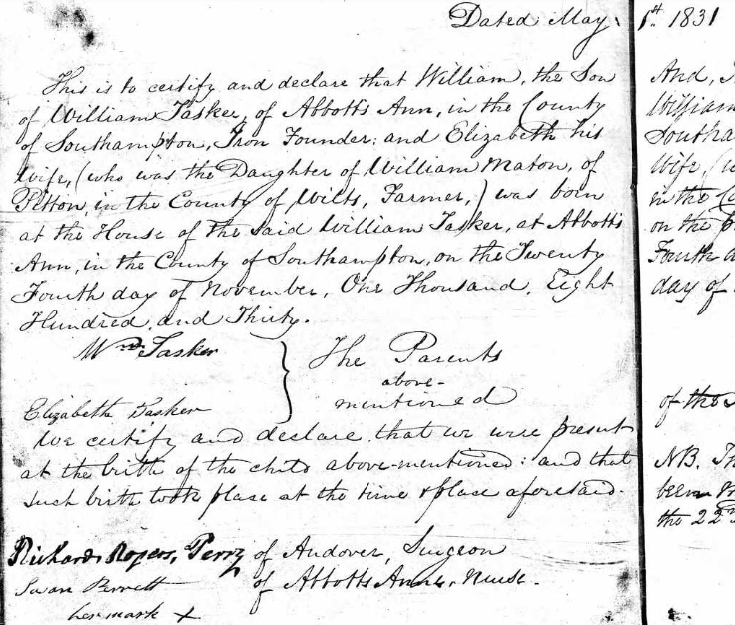 Dated May, 1st. 1831
This is to certify and declare that William, the Son
of William Tasker, of Abbotts Ann, in the County
of Southampton, Iron Founder; and Elizabeth his
Wife, (who was the Daughter of William Maton, of
Pitton, in the County of Wilts, Farmer,) was born
at the House of the said William Tasker, at Abbotts
Ann, in the County of Southampton, on the Twenty
Fourth day of November, One Thousand, Eight
Hundred, and Thirty.
Wm. Tasker
The Parents
above-
mentioned
Elizabeth Tasker
We certify and declare, that we were present
at the birth of the child above-mentioned: and that
such birth took place at the time & place aforesaid.
Richard Rogers, Perry of Andover, Surgeon
Perrett of Abbotts Ann, Nurse.
her mark X
And,
William
Southa
Wife,
in the
on the
Fourth
day of
of the
NB. Th
been
the 22